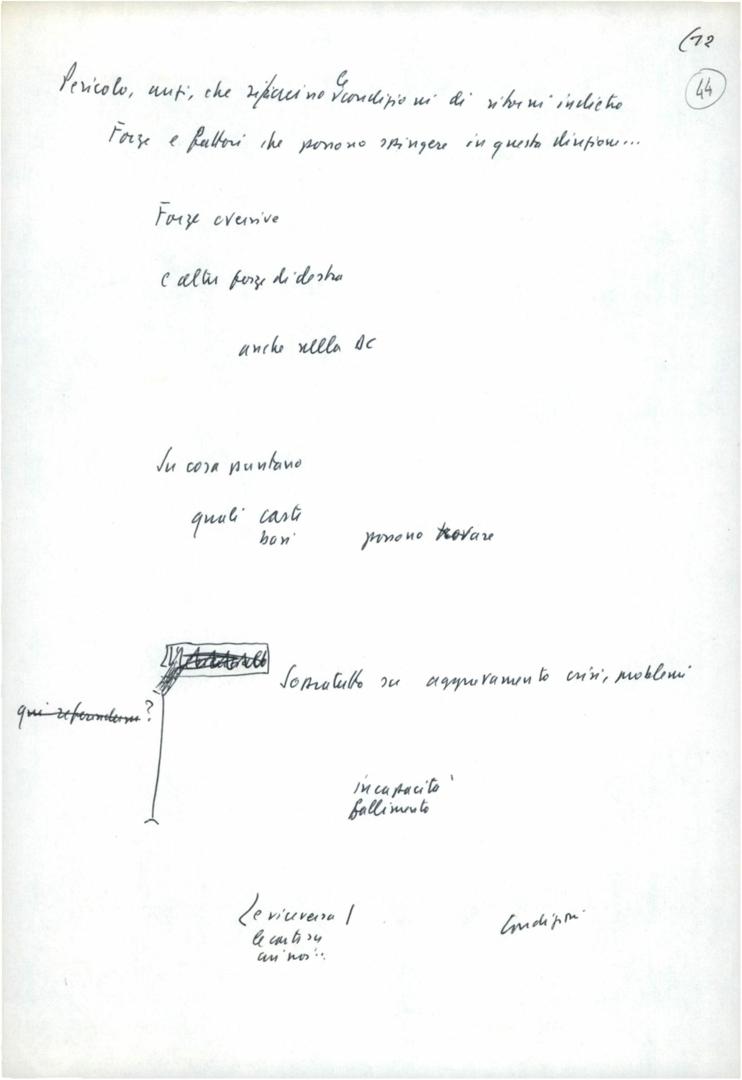 (12
44
Pericolo, anzi, che rifacciano le condizioni di ritorni indietro
Forze e fattori che possono spingere in questa direzione...
Forze eversive
e altre forze di destra
anche nella DC
Su cosa puntano
quali carte
basi possono trovare
Sopratutto su aggravamento crisi, problemi
qui referendum ?
incapacità
fallimento
(e viceversa
le carte su
cui noi...
Condizioni